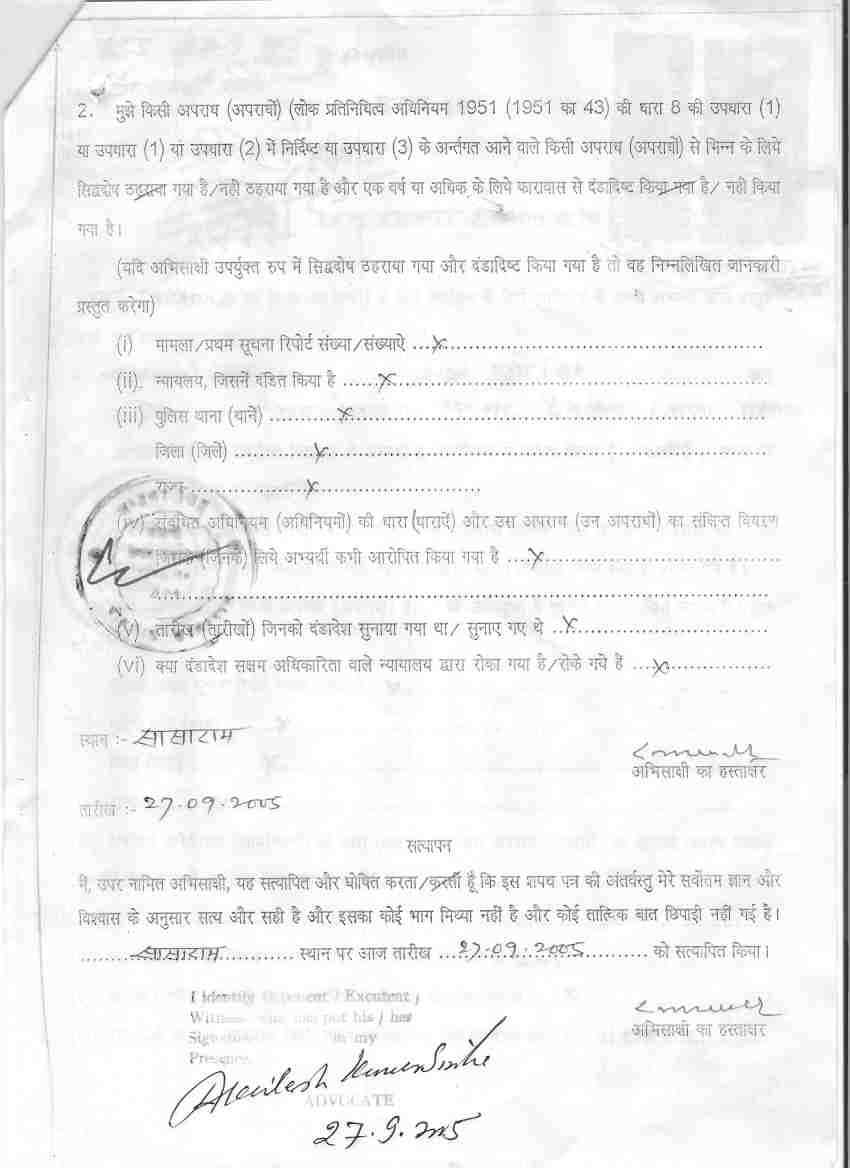 2. मुझे किसी अपराध (अपराधों) (लोक प्रतिनिधित्व अधिनियम 1951 (1951 का 43) की धारा 8 की उपधारा (1)
या उपधारा (1) या उपधारा (2) में निर्दिष्ट या उपधारा (3) के अर्न्तगत आने वाले किसी अपराध (अपराधों) से भिन्न के लिये
सिद्वदोष ठहराया गया है/नहीं ठहराया गया है और एक वर्ष या अधिक के लिये कारावास से दंडादिष्ट किया गया है/ नही किया
गया है।
(यदि अभिसाक्षी उपर्युक्त रुप में सिद्वदोष ठहराया गया और दंडादिष्ट किया गया है तो वह निम्नलिखित जानकारी
प्रस्तुत करेगा)
(i) मामला/प्रथम सूचना रिपोर्ट संख्या/संख्याऐ ...x...
(ii). न्यायलय, जिसनें दंडित किया है ......x...
(iii) पुलिस थाना (थानें) ...x...
जिला (जिलें) ...x...
राज्य ...x...
(iv) संबंधित अधिनियम (अधिनियमों) की धारा (धाराऐं) और उस अपराध (उन अपराधों) का संक्षिप्त विवरण
जिसके (जिनके) लिये अभ्यर्थी कभी आरोपित किया गया है ....x...
(v) तारीख (तारीखों) जिनको दंडादेश सुनाया गया था/ सुनाए गए थे ..x...
(vi) क्या दंडादेश सक्षम अधिकारिता वाले न्यायालय द्वारा रोका गया है/रोके गये हैं ...x...
स्थान :- सासाराम
अभिसाक्षी का हस्ताक्षर
तारीख :- 27.09.2005
सत्यापन
मै, उपर नामित अभिसाक्षी, यह सत्यापित और घोषित करता/करती हूँ कि इस शपथ पत्र की अंतर्वस्तु मेरे सर्वोतम ज्ञान और
विश्वास के अनुसार सत्य और सही है और इसका कोई भाग मिथ्या नहीं है और कोई तात्विक बात छिपाई नहीं गई है।
........सासाराम............ स्थान पर आज तारीख ...27.09.2005........... को सत्यापित किया।
I identify Deponent / Excutent /
Witness who has put his / her
in my
Presence
अभिसाक्षी का हस्ताक्षर
ADVOCATE
27.9.2005